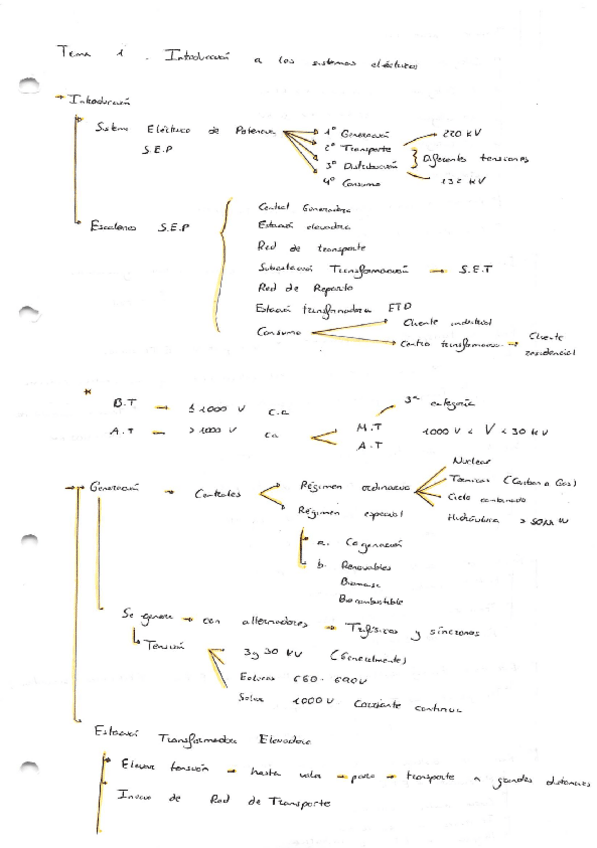 Tema 1 . Introducción a los sistemas eléctricos
→ Introducción
Sistema Eléctrico de Potencia
S.E.P
1º Generación → 220 kV
2º Transporte
3º Distribución
Diferentes tensiones
4º Consumo
132 kV
Escalones S.E.P
Central Generadora
Estación elevadora
Red de transporte
Subestación Transformación → S.E.T
Red de Reparto
Estación transformadora ETD
Consumo → Cliente industrial
→ Centro transformac. → Cliente residencial
*
B.T → ≤ 1000 V c.a
A.T → > 1000 V ca
M.T 1000 V < V < 30 kV
3ª categoría
A.T
→ Generación → Centrales
Régimen ordinario
Nuclear
Térmicas (Carbón o Gas)
Ciclo combinado
Hidráulica > 50MW
Régimen especial
a. Cogeneración
b. Renovables
Biomasa
Biocombustible
Se genera → con alternadores → Trifásicos y síncronos
Tensión
3 y 30 kV (Generalmente)
Eólicas 660 - 690V
Solar 1000V Corriente continua
Estación Transformadora Elevadora
Elevar tensión → hasta valor → para → transporte a grandes distancias
Inicio de Red de Transporte